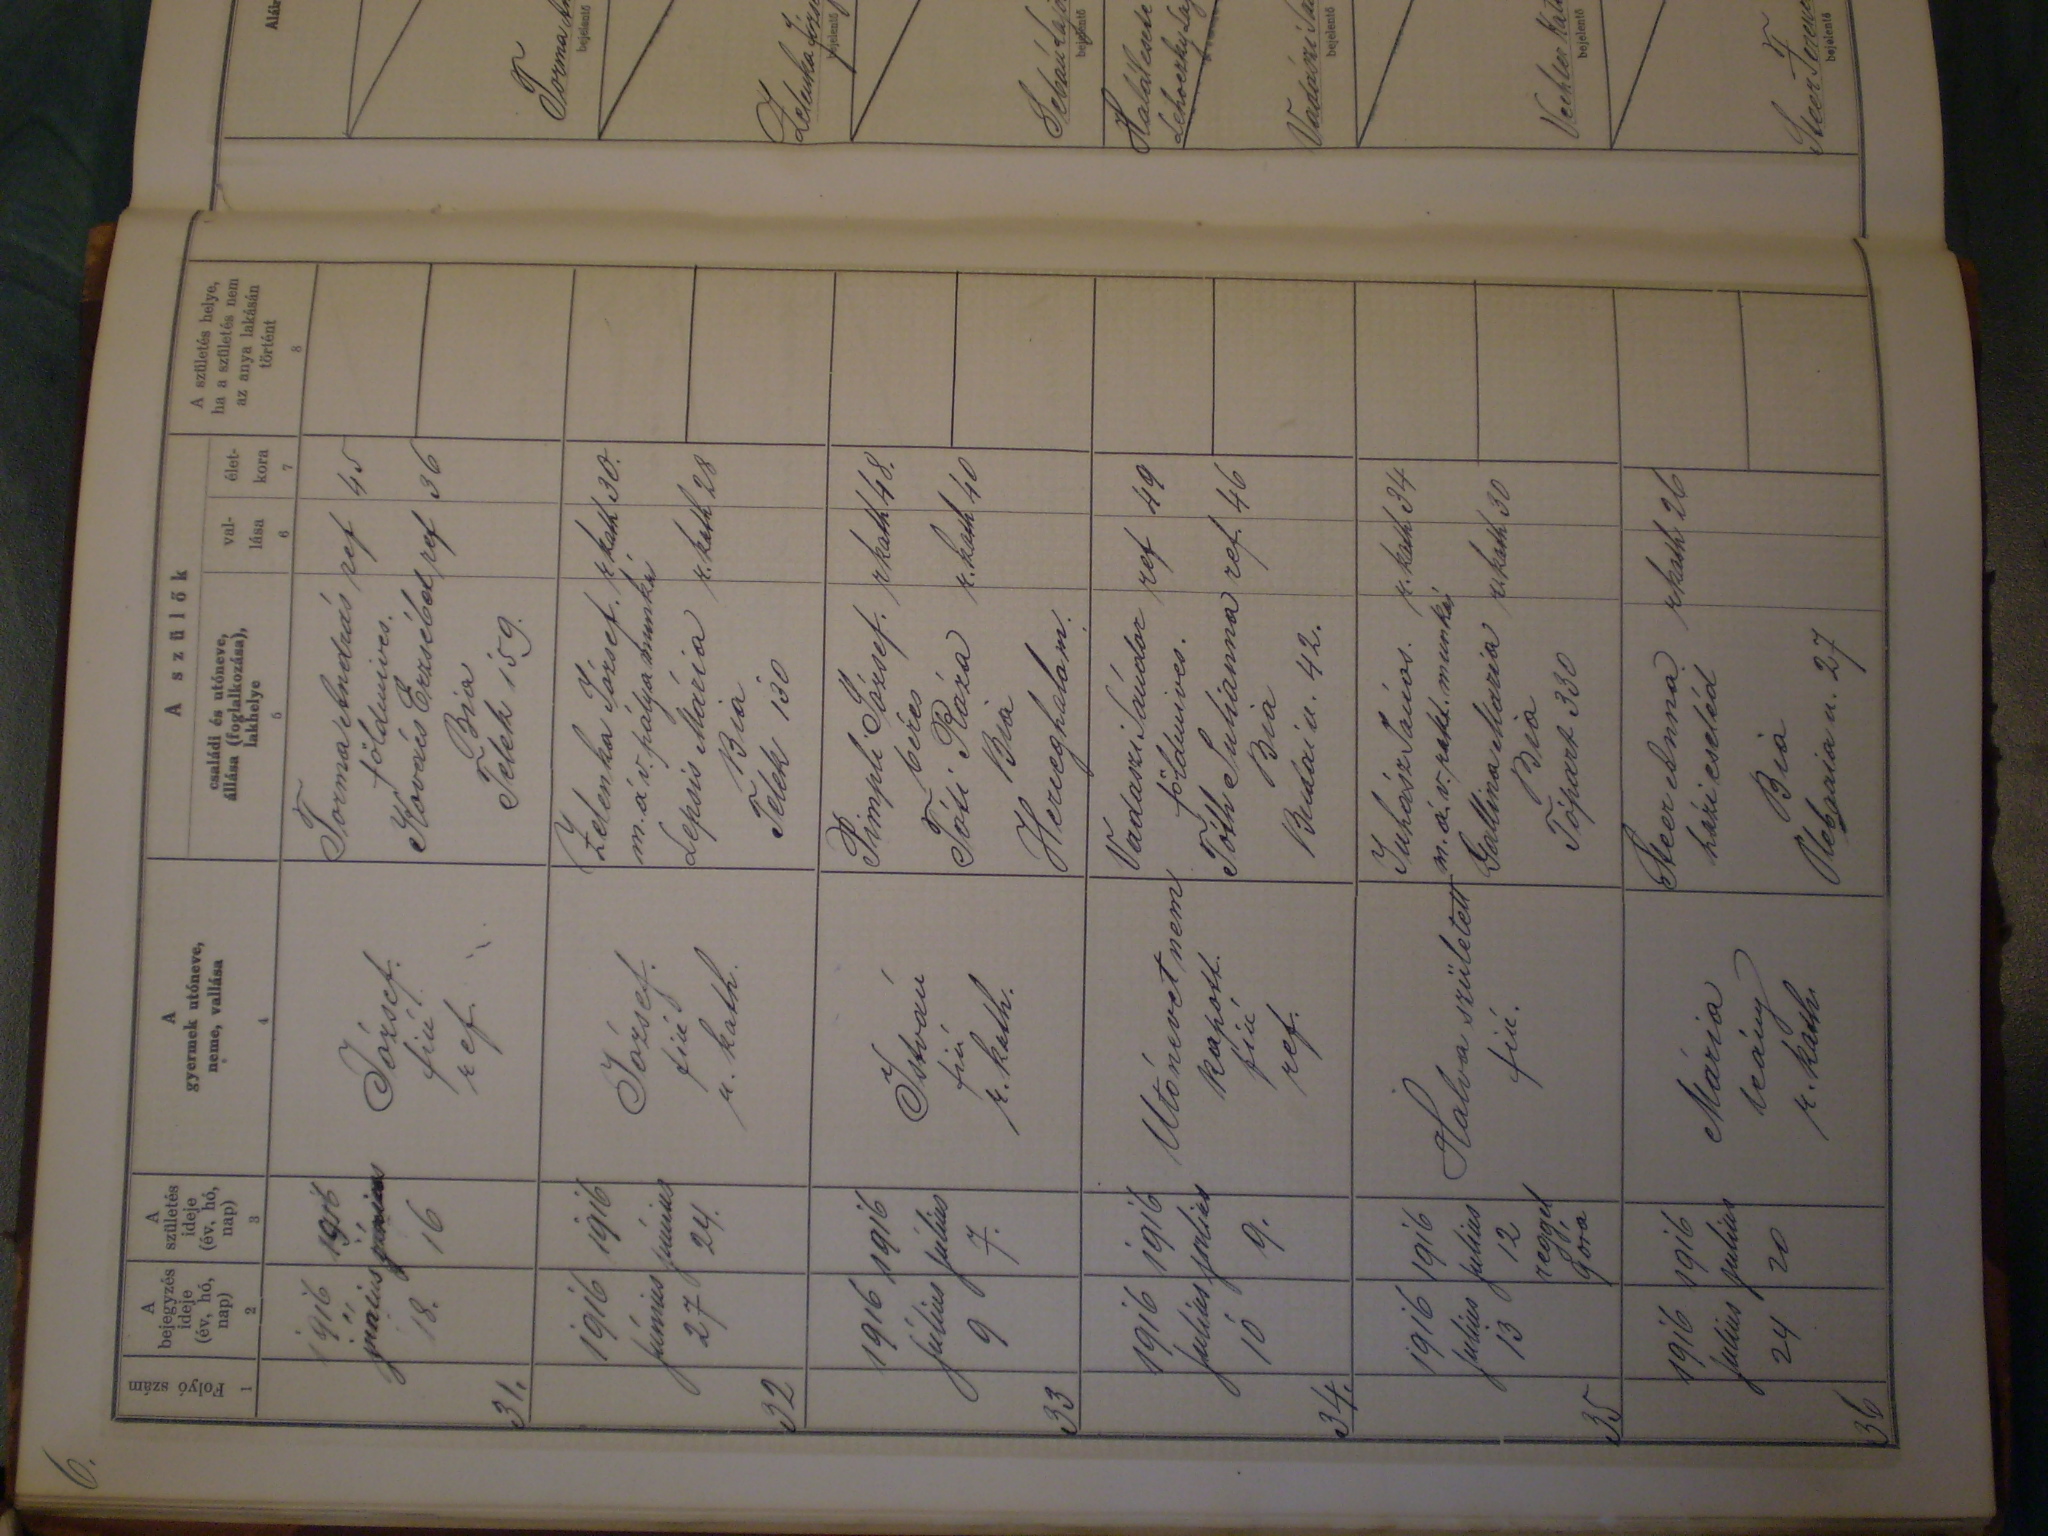 6.
Folyó szám
1
A
bejegyzés
ideje
(év, hó,
nap)
2
A
születés
ideje
(év, hó,
nap)
3
A
gyermek utóneve,
neme, vallása
4
A szülők
családi és utóneve,
állása (foglalkozása),
lakhelye
5
val-
lása
6
élet-
kora
7
A születés helye,
ha a születés nem
az anya lakásán
történt
8
31.
1916
18.
1916
június
16
József.
fiú.
ref.
Torma András ref 45
földmives.
Kovács Erzsébet ref 36
Bia
Telek 159.
32
1916
június
27
1916
június
24.
József.
fiú
r. kath.
Zelenka József. r. kath 30.
m. á. v. pályamunkás
Lepsis Mária r. kath 28
Bia
Telek 130
33
1916
július
9
1916
július
7.
István
fiú
r. kath.
Pimpli József. r kath 48.
béres
Tóti Róza r. kath 40
Bia
Herceghalom.
34.
1916
július
10
1916
július
9.
Utónevet nem
kapott.
fiú
ref.
Vadászi Sándor ref 49
földmives.
Tóth Julianna ref. 46
Bia
Budai u. 42.
35
1916
július
13
1916
július
12
reggel
9 óra
Halva született
fiú.
Juhász János. r. kath 34
m. á. v. rakt. munkás
Gallina Mária r. kath 30
Bia
Tópart 330
36
1916
július
24
1916
július
20
Mária
leány
r. kath.
Steer Anna r kath 26
házi cseléd
Bia
u. 27
Aláí
Torma
bejelentő
Zelenka
bejelentő
bejelentő
Halál esete
Vadászi
bejelentő
bejelentő
Steer
bejelentő